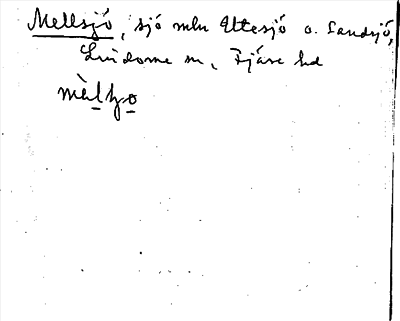 Mellsjö, sjö mln Uttesjö o. Sandsjö,
Lindome sn, Fjäre hd
mèlʃo